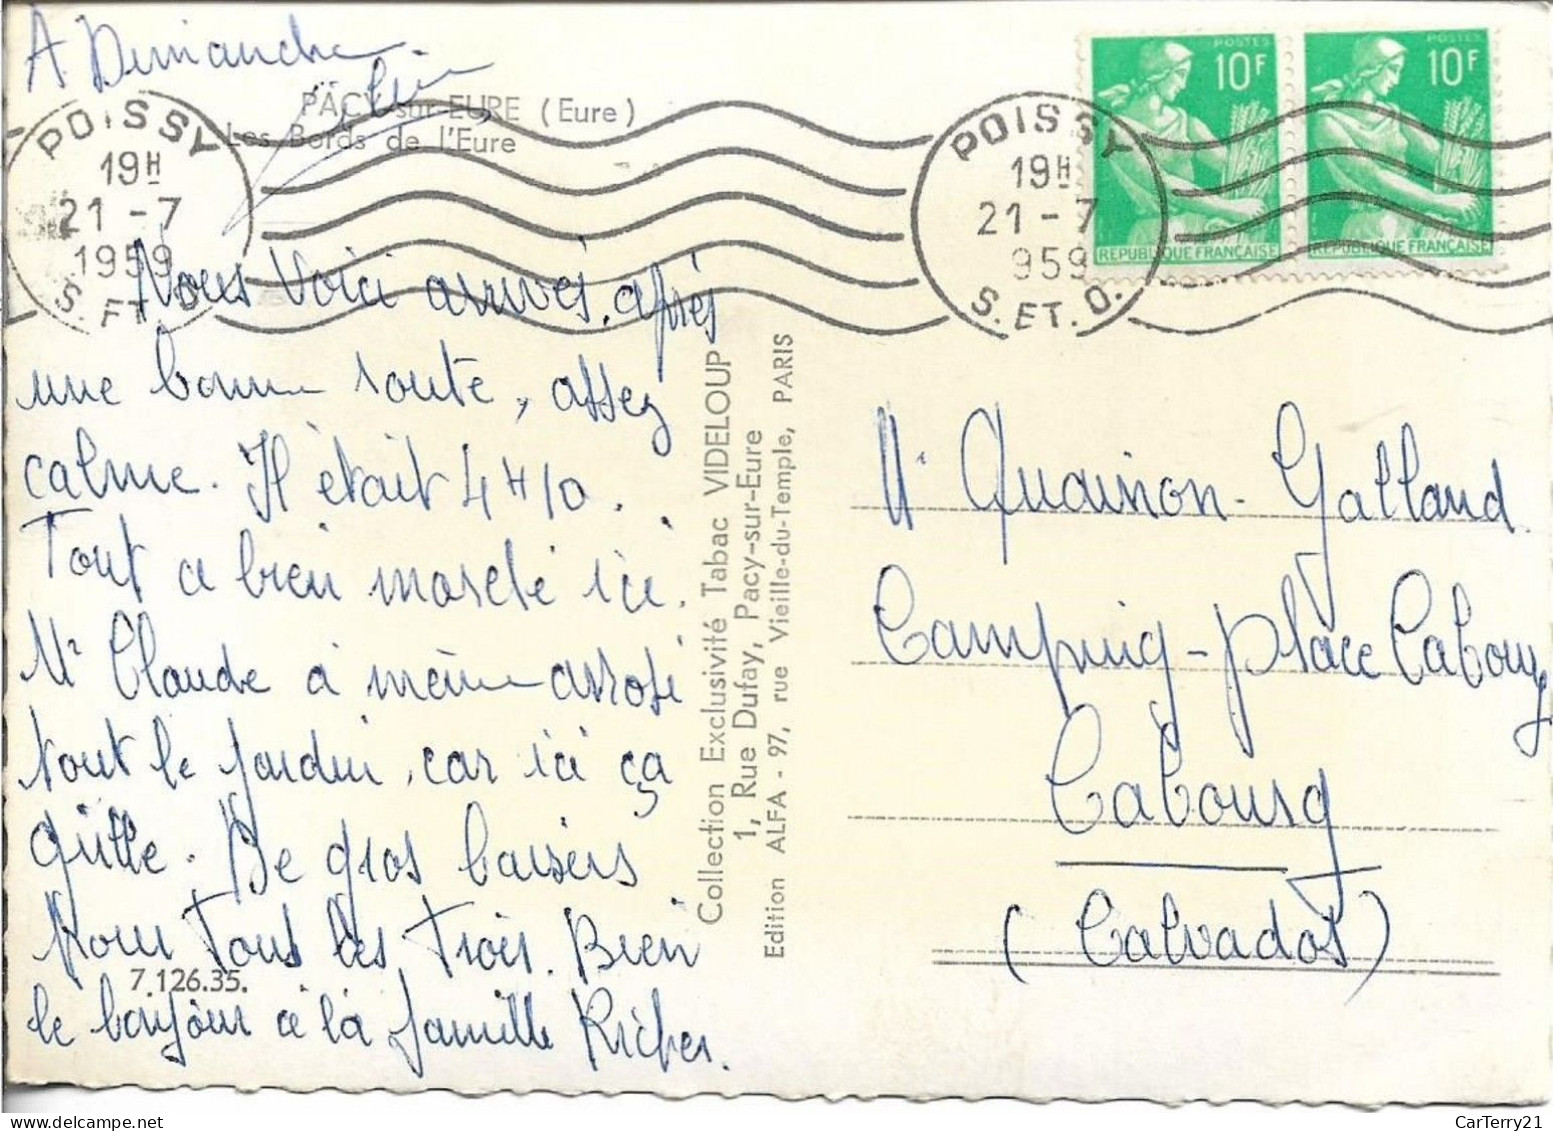 A Dimanche.
PACY-sur-EURE (Eure)
Les Bords de l'Eure
POISSY
19H
21-7
1959
S. ET. O.
POISSY
19H
21-7
959
S. ET. O.
POSTES
10F
REPUBLIQUE FRANCAISE
POSTES
10F
REPUBLIQUE FRANCAISE
Nous voici arrivés, après
une bonne route, assez
calme. Il était 4H10.
Tout a bien marché ici.
Mr Claude à même arrosé
tout le jardin, car ici ça
grille. De gros baisers
pour tous les trois. Bien
le bonjour à la famille Richer.
7.126.35.
Collection Exclusivité Tabac VIDELOUP
1, Rue Dufay, Pacy-sur-Eure
Edition ALFA - 97, rue Vieille-du-Temple, PARIS
Mr Quainon-Galland
Camping-place Cabourg
Cabourg
(Calvados)
CarTerry21